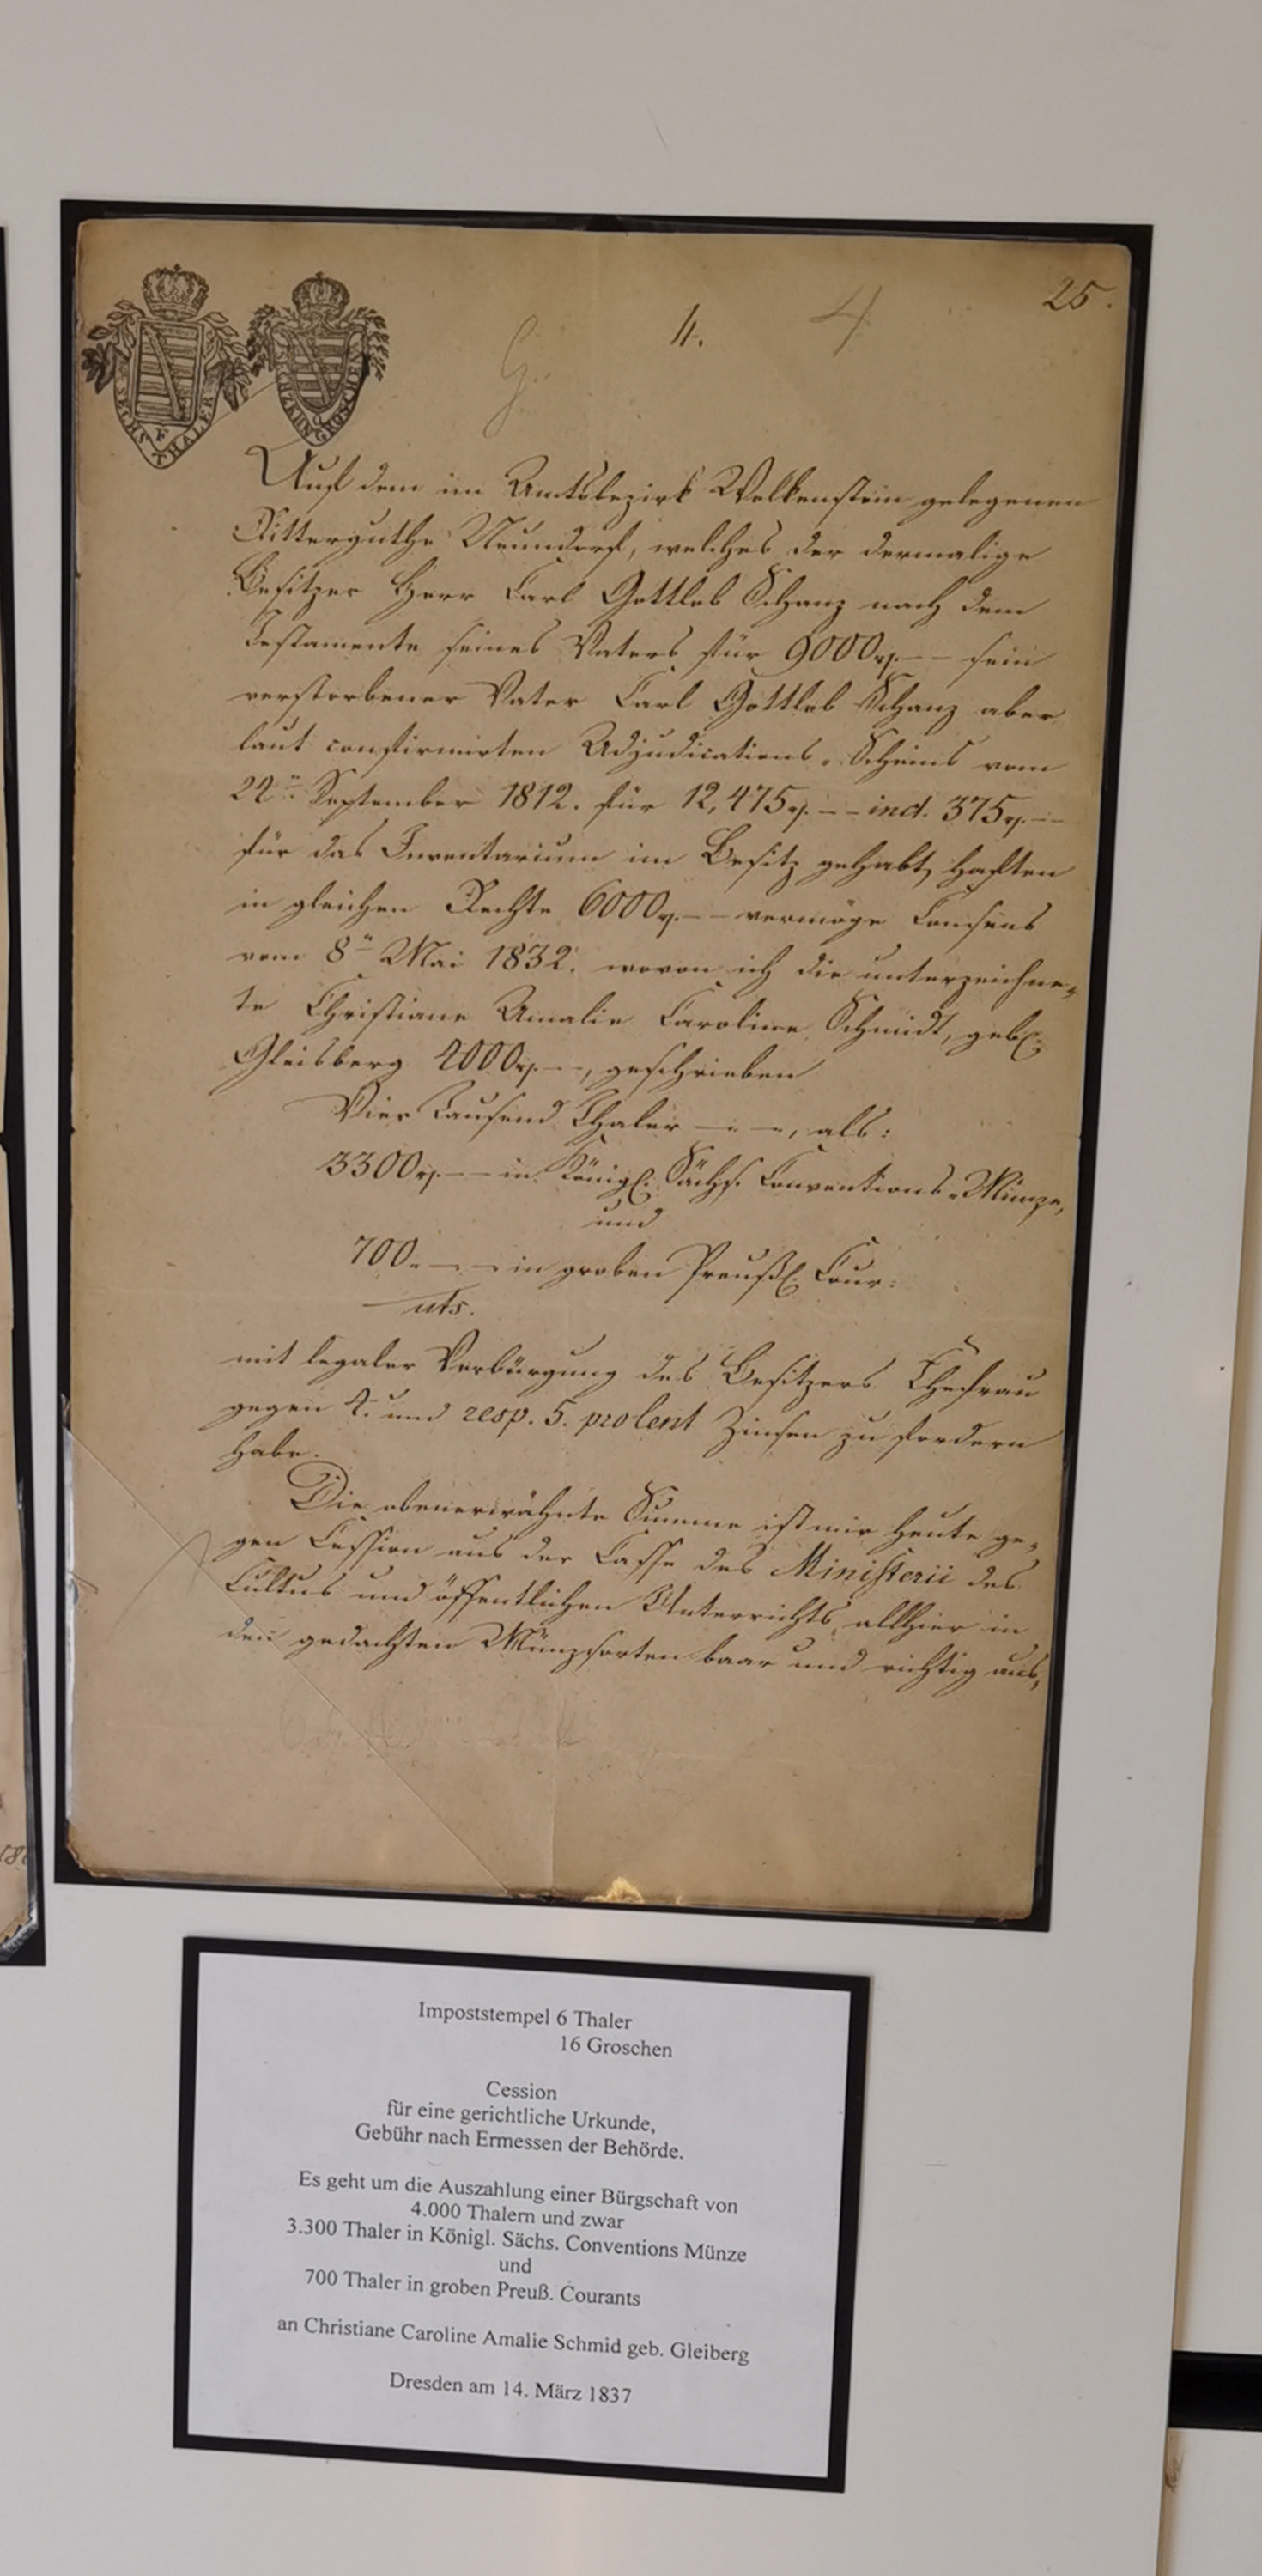 25.
4.
4
SECHS THALER
SECHZEHN GROSCHEN
Auf dem im Amtsbezirk Wolkenstein gelegenen
Ritterguthe Neundorf, welches der dermalige
Besitzer Herr Carl Gottlob Schanz nach dem
Testamente seines Vaters für 9000 rp. — — sein
verstorbener Vater Carl Gottlob Schanz aber
laut confirmirten Adjudications-Scheins vom
22n September 1812. für 12,475 rp. — — incl. 375 rp. — —
für das Inventarium im Besitz gehabt, haften
in gleichen Rechte 6000 rp. — — vermöge Consens
vom 8n Mai 1832. wovon ich die unterzeichne-
te Christiane Amalie Caroline Schmidt, geb.
Gleisberg 4000 rp. — —, geschrieben
Vier Tausend Thaler — — —, als:
3300 rp. — — in Königl. Sächs. Conventions-Münze,
und
700. — — in groben Preußl. Cour:
uts.
mit legaler Verbürgung des Besitzers Ehefrau
gegen 4. und resp. 5. pro Cent Zinsen zu fordern
habe.
Die obenerwähnte Summe ist mir heute ge-
gen Cession aus der Casse des Ministerii des
Cultus und öffentlichen Unterrichts, allhier in
den gedachten Münzsorten baar und richtig aus,
Impoststempel 6 Thaler
16 Groschen
Cession
für eine gerichtliche Urkunde,
Gebühr nach Ermessen der Behörde.
Es geht um die Auszahlung einer Bürgschaft von
4.000 Thalern und zwar
3.300 Thaler in Königl. Sächs. Conventions Münze
und
700 Thaler in groben Preuß. Courants
an Christiane Caroline Amalie Schmid geb. Gleiberg
Dresden am 14. März 1837